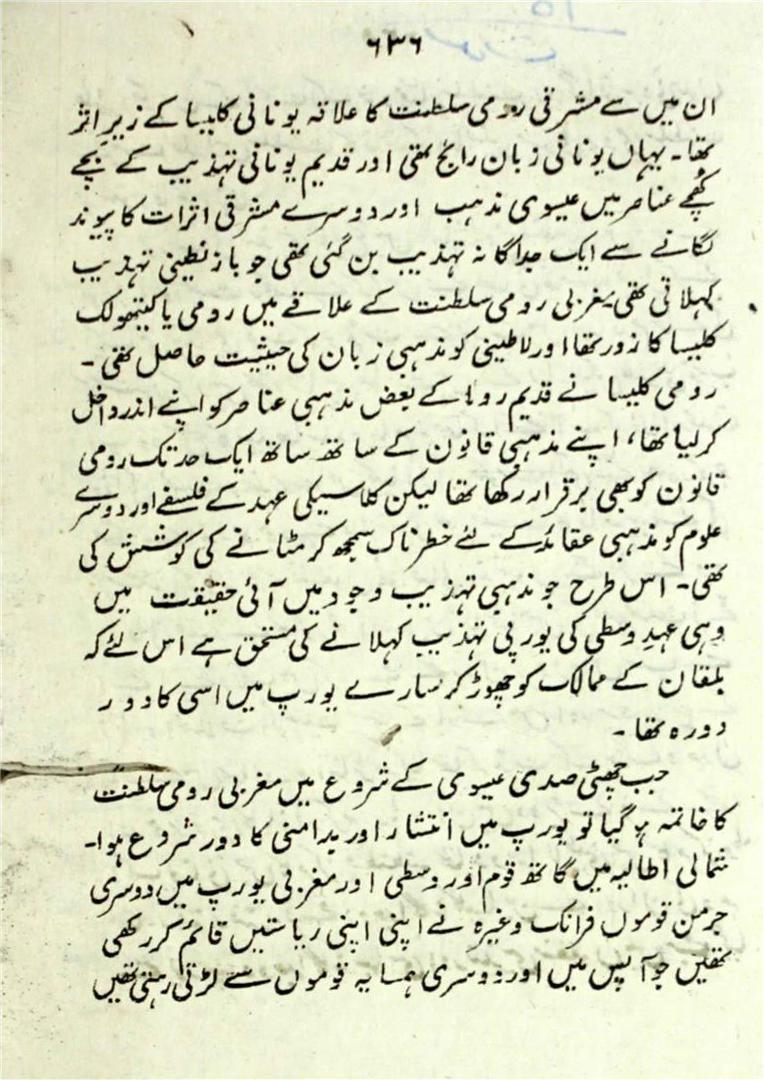 ۶۳۶
ان میں سے مشرقی رومی سلطنت کا علاقہ یونانی کلیسا کے زیر اثر
تھا۔ یہاں یونانی زبان رائج تھی اور قدیم یونانی تہذیب کے بچے
کھچے عناصر میں عیسوی مذہب اور دوسرے مشرقی اثرات کا پیوند
لگانے سے ایک جداگانہ تہذیب بن گئی تھی جو بازنطینی تہذیب
کہلاتی تھی۔ مغربی رومی سلطنت کے علاقے میں رومی یا کیتھولک
کلیسا کا زور تھا اور لاطینی کو مذہبی زبان کی حیثیت حاصل تھی۔
رومی کلیسا نے قدیم روما کے بعض مذہبی عناصر کو اپنے اندر داخل
کر لیا تھا، اپنے مذہبی قانون کے ساتھ ساتھ ایک حد تک رومی
قانون کو بھی برقرار رکھا تھا لیکن کلاسیکی عہد کے فلسفے اور دوسرے
علوم کو مذہبی عقائد کے لئے خطرناک سمجھ کر مٹانے کی کوشش کی
تھی۔ اس طرح جو مذہبی تہذیب وجود میں آئی حقیقت میں
وہی عہد وسطی کی یورپی تہذیب کہلانے کی مستحق ہے اس لئے کہ
بلقان کے ممالک کو چھوڑ کر سارے یورپ میں اسی کا دور
دورہ تھا۔
جب چھٹی صدی عیسوی کے شروع میں مغربی رومی سلطنت
کا خاتمہ ہو گیا تو یورپ میں انتشار اور بدامنی کا دور شروع ہوا۔
شمالی اطالیہ میں گاتھ قوم اور وسطی اور مغربی یورپ میں دوسری
جرمن قوموں فرانک وغیرہ نے اپنی اپنی ریاستیں قائم کر رکھی
تھیں جو آپس میں اور دوسری ہمسایہ قوموں سے لڑتی رہتی تھیں